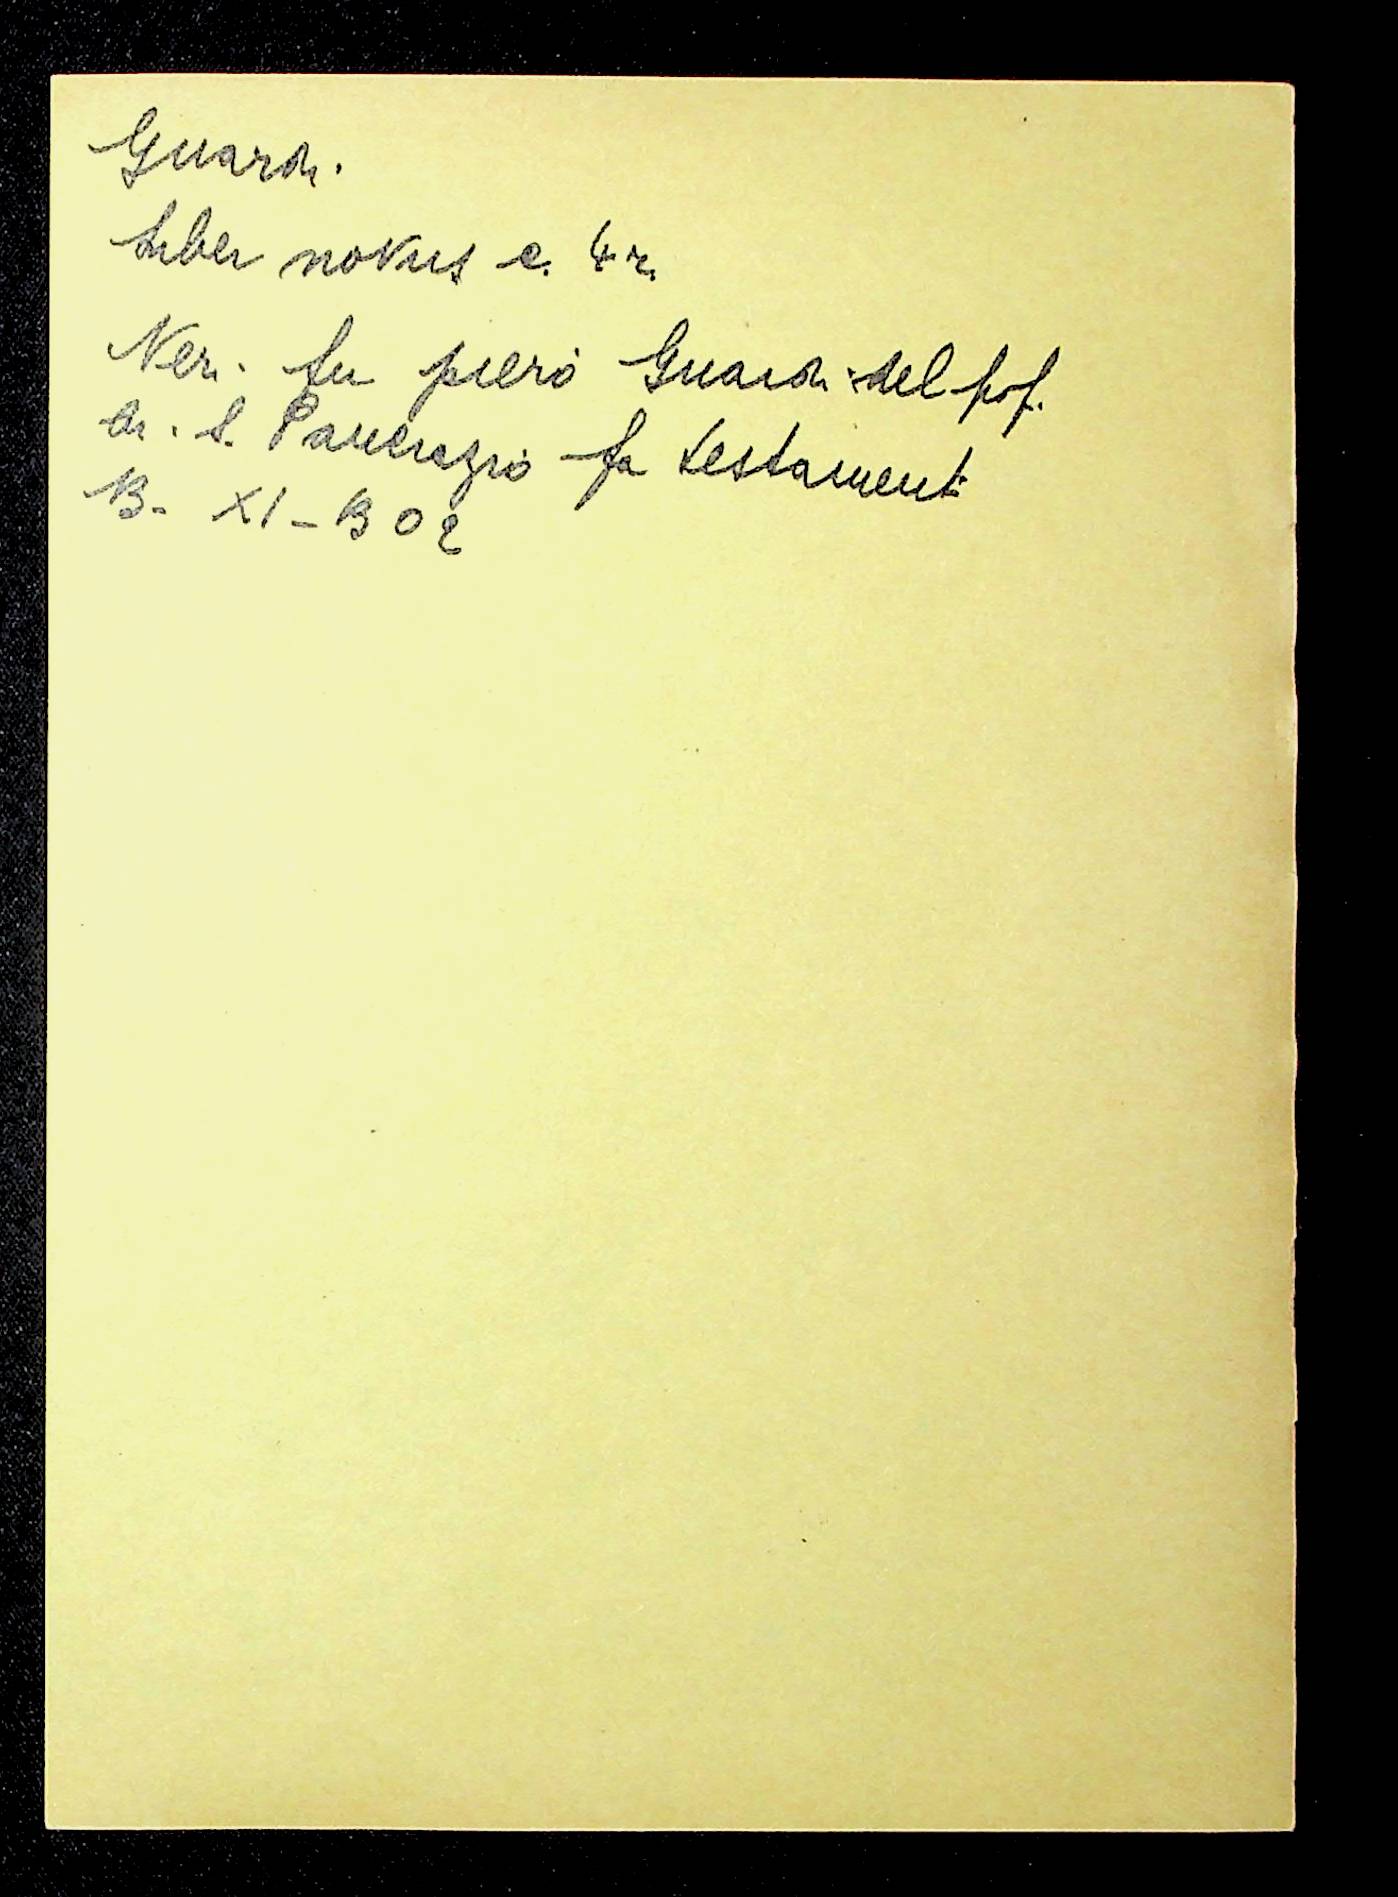 Guardi
Liber novus c. 4 r.
Neri fu piero Guardi del pop.
di S. Pancrazio fa testament
13 - XI - 1302